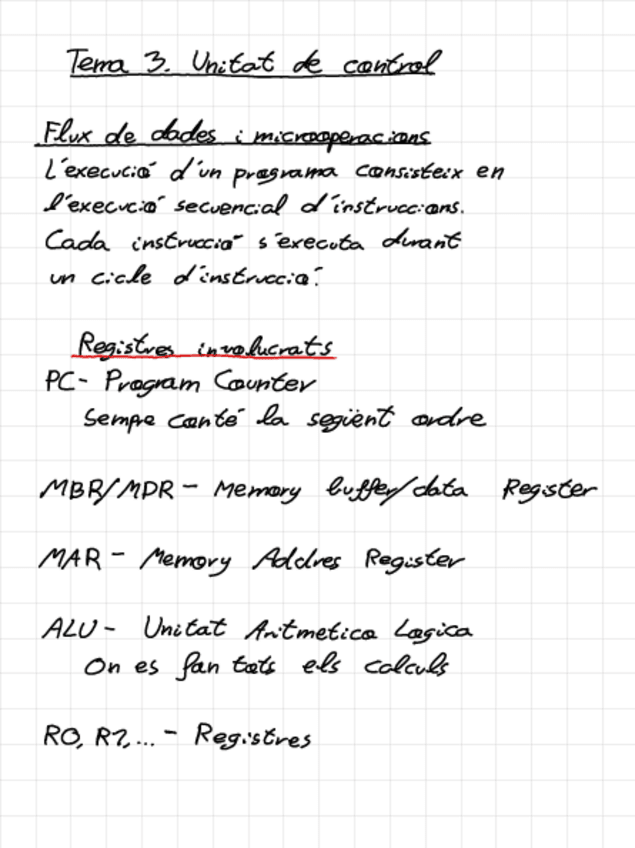 Tema 3. Unitat de control
Flux de dades i microoperacions
L'execució d'un programa consisteix en
l'execució secuencial d'instruccions.
Cada instrucció s'executa durant
un cicle d'instrucció.
Registres involucrats
PC - Program Counter
Sempre conté la següent ordre
MBR/MDR - Memory buffer/data Register
MAR - Memory Addres Register
ALU - Unitat Aritmetica Logica
On es fan tots els calculs
R0, R1, ... - Registres